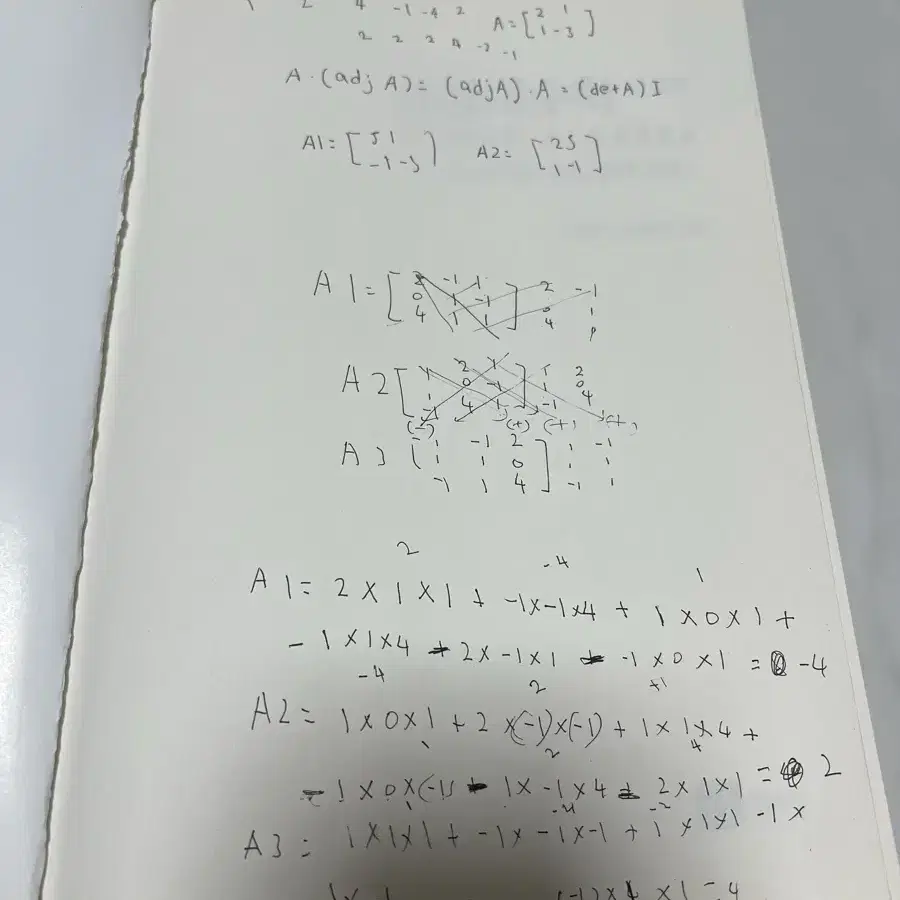 2 4 -1 -4 2
A = [2 1
2 2 2 4 -2 -1
1 -3]
A · (adj A) = (adj A) · A = (det A) I
A1 = [5 1
-1 -3]
A2 = [2 5
1 -1]
A1 = [2 -1 1 2 -1
0 1 -1 0 1
4 1 1] 4 1
A2 [1 2 1 1 2
1 0 -1 1 0
-1 4 1] -1 4
(-) (+) (+) (+)
A3 [1 -1 2 1 -1
1 1 0 1 1
-1 1 4] -1 1
2 -4 1
A1 = 2 × 1 × 1 + -1 × -1 × 4 + 1 × 0 × 1 +
- 1 × 1 × 4 - 2 × -1 × 1 - -1 × 0 × 1 = -4
-4 2 +1
A2 = 1 × 0 × 1 + 2 × (-1) × (-1) + 1 × 1 × 4 +
1 2 4
- 1 × 0 × (-1) - 1 × -1 × 4 - 2 × 1 × 1 = 2
1 -4 -2
A3 = 1 × 1 × 1 + -1 × -1 × -1 + 1 × 1 × 1 - 1 ×
× 1 = 4